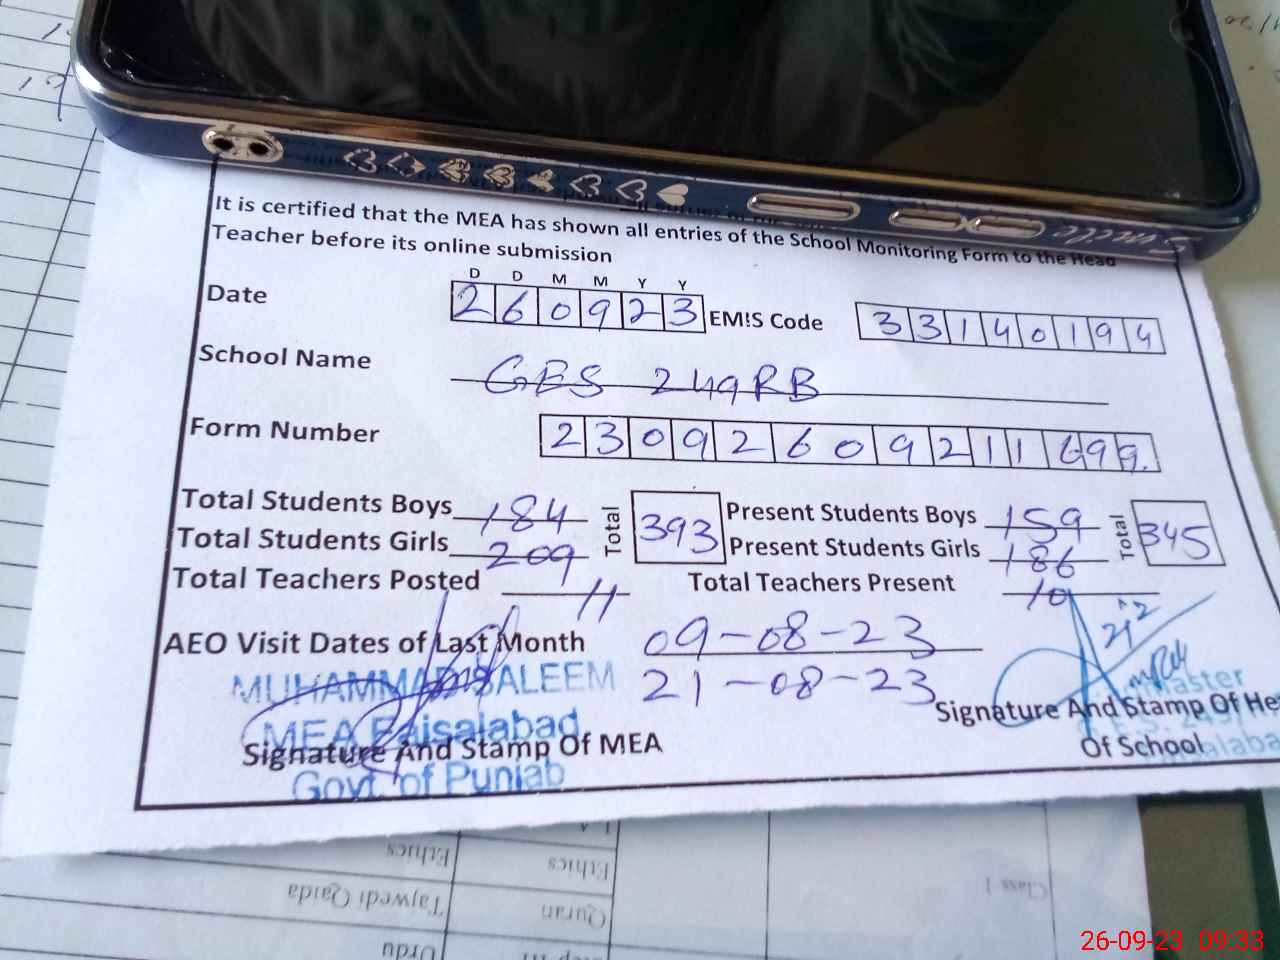 It is certified that the MEA has shown all entries of the School Monitoring Form to the Head
Teacher before its online submission
D D M M Y Y
Date 2 6 0 9 2 3 EMIS Code 3 3 1 4 0 1 9 4
School Name GES 249RB
Form Number 2 3 0 9 2 6 0 9 2 1 1 6 9 9.
Total Students Boys 184 Total 393 Present Students Boys 159 Total 345
Total Students Girls 209 Present Students Girls 186
Total Teachers Posted 11 Total Teachers Present 10
AEO Visit Dates of Last Month 09-08-23
21-08-23
MUHAMMAD SALEEM
MEA Faisalabad
Govt. of Punjab
Signature And Stamp Of MEA
master
Signature And Stamp Of He
Of School
alaba
Class 1
Ethics
Ethics
Quran
Tajwedi Qaida
Urdu
26-09-23 09:33